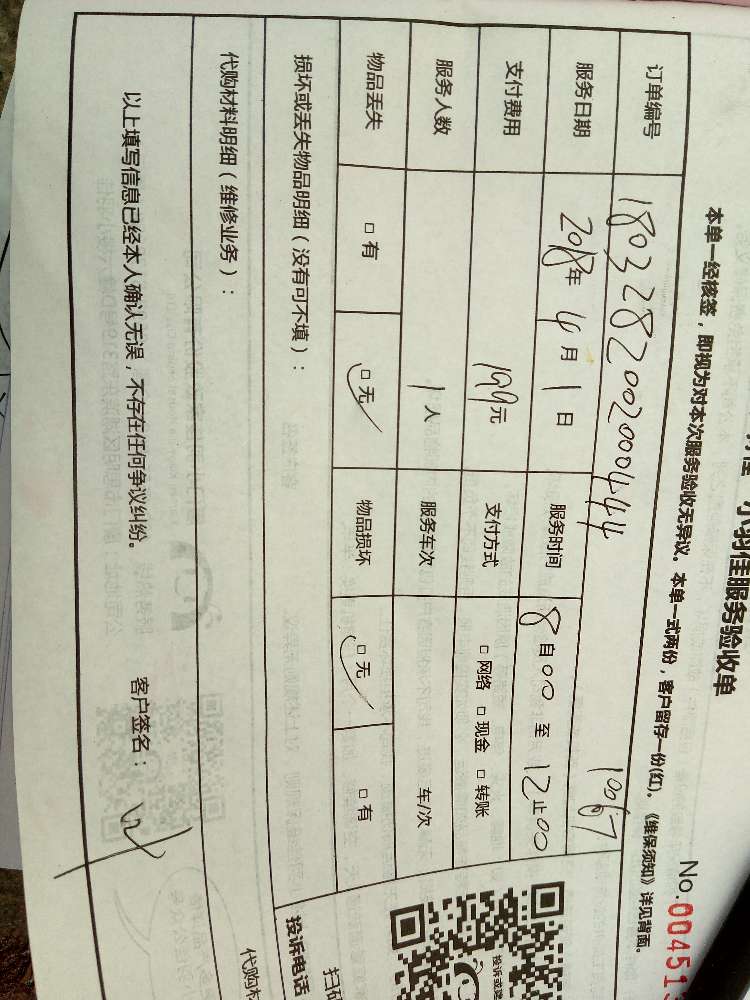 小羽佳服务验收单
No.00451
本单一经核签，即视为对本次服务验收无异议。本单一式两份，客户留存一份(红)。《维保须知》详见背面。
订单编号 1803282002000444 10067
服务日期 2018年 4月 1日 服务时间 8自00 至 12止00
支付费用 199元 支付方式 □网络 □现金 □转账
服务人数 1人 服务车次 车/次
物品丢失 □有 □无 物品损坏 □无 □有
损坏或丢失物品明细（没有可不填）：
代购材料明细（维修业务）：
以上填写信息已经本人确认无误，不存在任何争议纠纷。 客户签名：
投诉或建
扫码
投诉电话
代购材